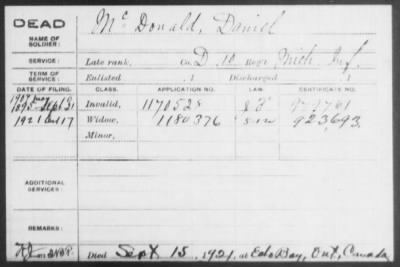 DEAD
NAME OF SOLDIER:
Mc Donald, Daniel
SERVICE:
Late rank, Co. D, 10 Reg't Mich Inf.
TERM OF SERVICE:
Enlisted , 1 Discharged , 1
DATE OF FILING. CLASS. APPLICATION NO. LAW. CERTIFICATE NO.
Invalid, 1170528
1921 17 Widow, 1180376 923,693
Minor,
ADDITIONAL SERVICES:
REMARKS:
Died Sept 15, 1921, at Echo Bay, Ont, Canada